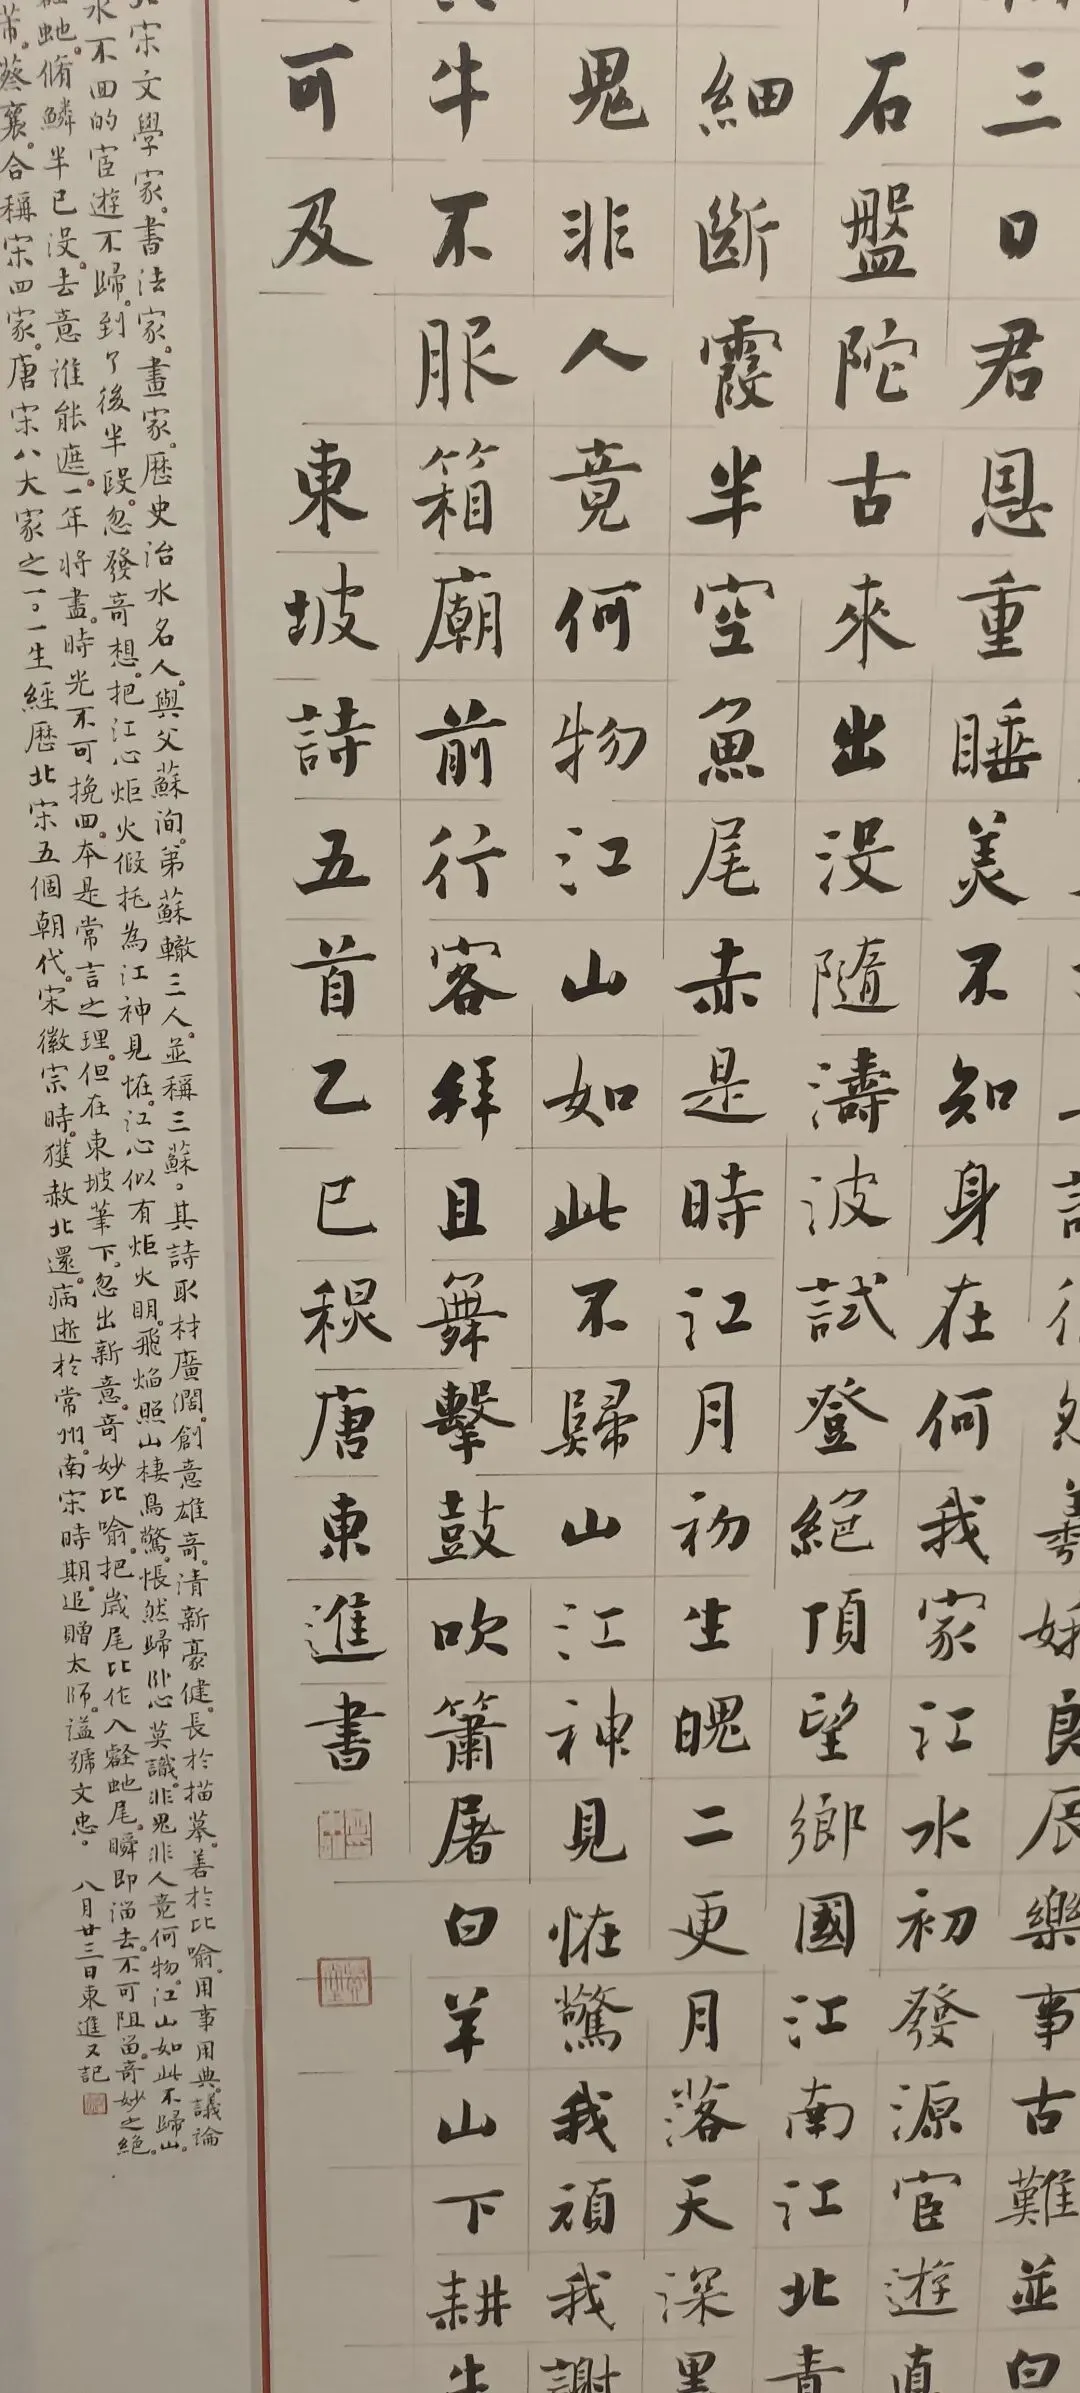 三日君恩重睡美不知身在何我家江水初發源宦遊直
石盤陀古來出没隨濤波試登絕頂望鄉國江南江北青
細斷霞半空魚尾赤是時江月初生魄二更月落天深黑
鬼非人竟何物江山如此不歸山江神見怪驚我頑我謝
牛不服箱廟前行客拜且舞擊鼓吹簫屠白羊山下耕牛
可及
東坡詩五首乙巳穆唐東進書
宋文學家。書法家。畫家。歷史治水名人。與父蘇洵。弟蘇轍三人。並稱三蘇,其詩取材廣闊。創意雄奇。清新豪健。長於描摹。善於比喻。用事用典。議論
水不回的宦遊不歸。到了後半段。忽發奇想。把江心炬火假托為江神見怪。江心似有炬火明。飛焰照山棲鳥驚。悵然歸卧心莫識。非鬼非人竟何物。江山如此不歸山。
虵。脩鱗半已没。去意誰能遮。一年將盡。時光不可挽回。本是常言之理。但在東坡筆下。忽出新意。奇妙比喻。把歲尾比作入壑虵尾。瞬即溜去。不可阻留。奇妙之絕。
芾。蔡襄。合稱宋四家。唐宋八大家之一。一生經歷北宋五個朝代。宋徽宗時。獲赦北還。病逝於常州。南宋時期。追贈太師。謚號文忠。 八月廿三日東進又記